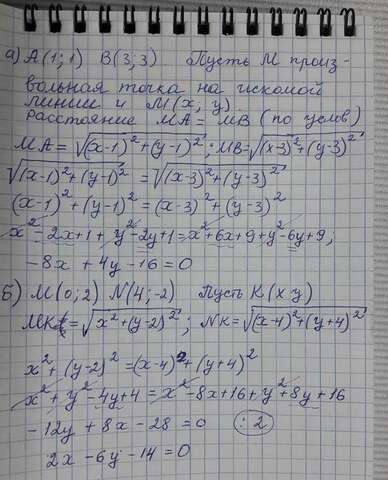 а) A(1;1) B(3,3) Пусть M произ-
вольная точка на искомой
линии и M(x, y)
расстояние MA = MB (по услов)
MA = √(x-1)²+(y-1)²; MB=√(x-3)²+(y-3)²
√(x-1)²+(y-1)² = √(x-3)²+(y-3)²
(x-1)²+(y-1)² = (x-3)²+(y-3)²
x²-2x+1+y²-2y+1=x²+6x+9+y²-6y+9;
-8x+4y-16=0
б) M(0;2) N(4,-2) Пусть K(x;y)
MK=√x²+(y-2)²; NK=√(x-4)²+(y+4)²
x²+(y-2)²=(x-4)²+(y+4)²
x²+y²-4y+4=x²-8x+16+y²+8y+16
-12y+8x-28=0 :2
2x-6y-14=0